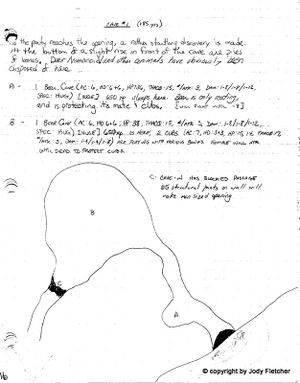 CAVE #2 (185 yds)
the party reaches the opening, a rather startling discovery is made.
At the bottom of a slight rise in front of the cave are piles
of bones. Deer, humanoid, and other animals have obviously been
disposed of here.
A - 1 BEAR, CAVE (AC: 6, HD: 6+6, #ATT: 3, DAM: 1-8/1-8/1-12,
SPEC: HUG) [HUGE] 650 XP always here. Bear is only resting,
and is protecting its mate & cubs.
B - 1 BEAR CAVE (AC: 6, HD: 6+6, #ATT: 3, DAM: 1-8/1-8/1-12,
SPEC: HUG) [HUGE] 650 XP is HERE, 2 CUBS
ARE PLAYING WITH VARIOUS BONES. FEMALE WILL
UNTIL DEAD TO PROTECT CUBS.
C - CAVE-IN HAS BLOCKED PASSAGE
structural points on wall will
make man sized opening
B
C
A
16
© copyright by Jody Fletcher